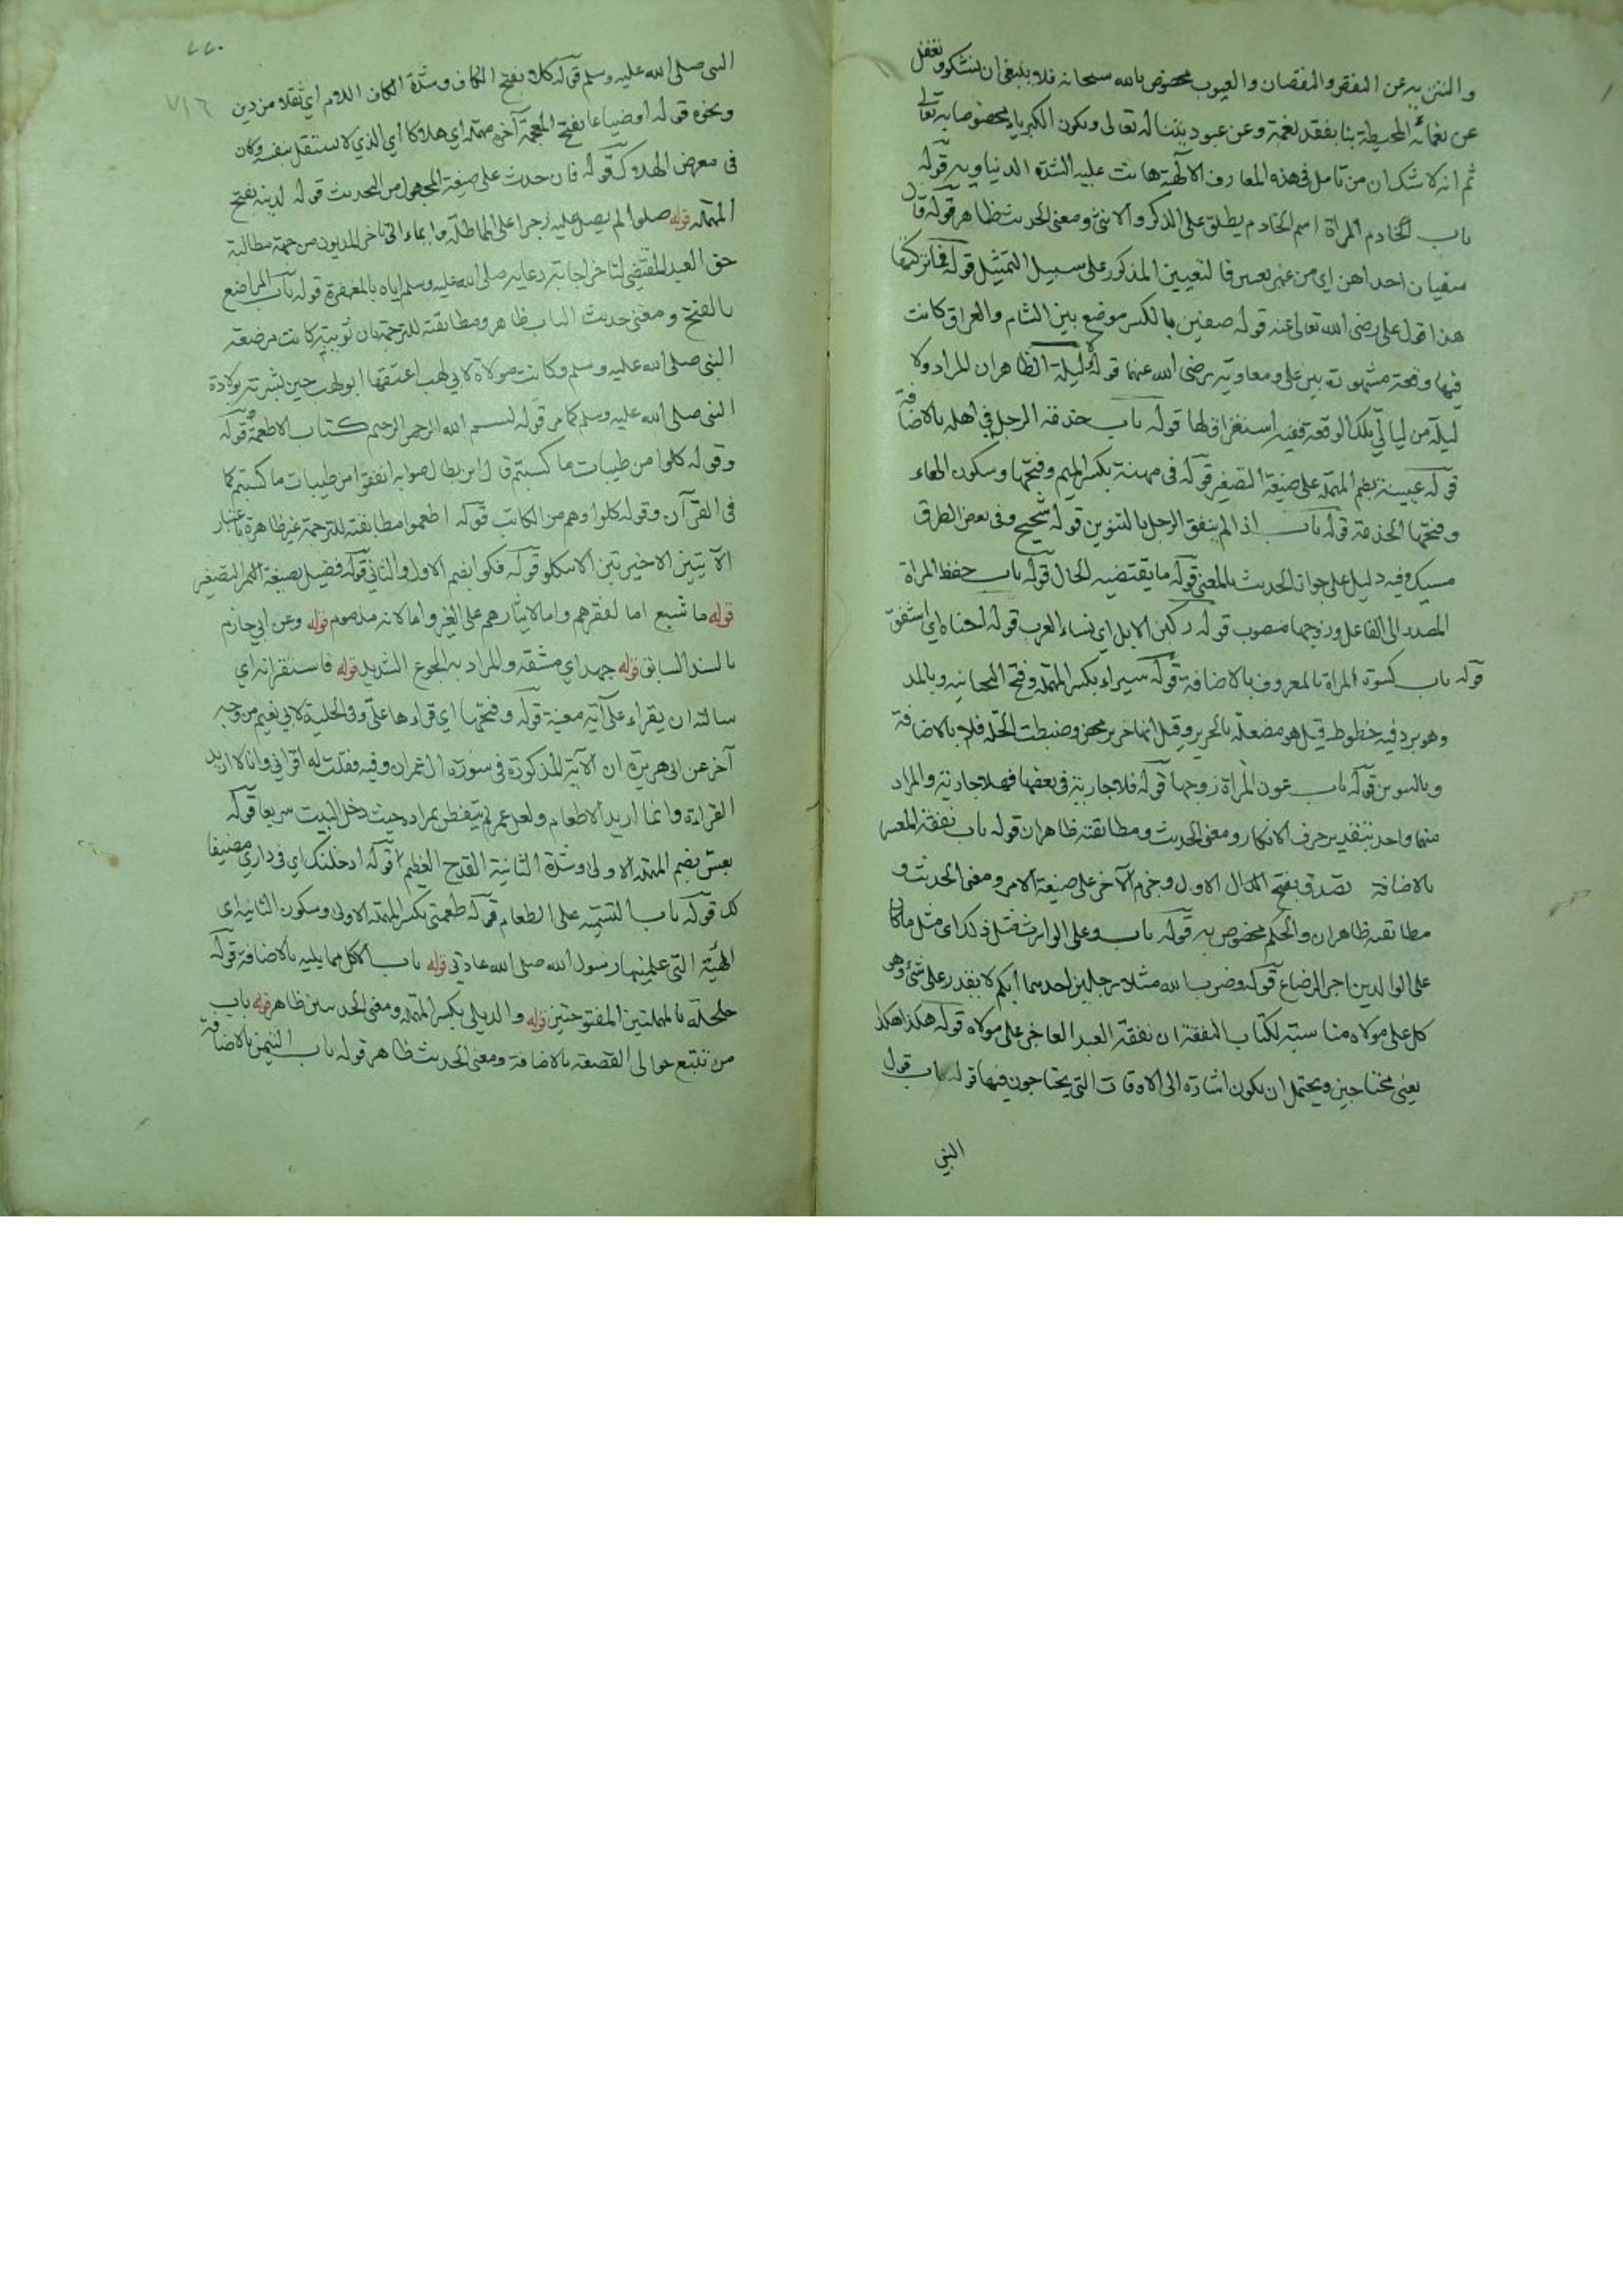 والتنزيه عن النقص والنقصان والعيوب مخصوص بالله سبحانه فلا ينبغي ان نشكو ونغفل
عن نعمائه المحيطة بنا بفقد نعمة وعن عبوديتنا له تعالى ويكون الكبرياء مخصوصا به تعالى
ثم انه لا شك ان من تامل في هذه المعارف الالهية هانت عليه الشدة الدنياوية قوله
باب الخادم المراة اسم الخادم يطلق على الذكر والانثى ومعنى الحديث ظاهر قوله قال
سفيان احداهن اي من غير تعيين فالتعيين المذكور على سبيل التمثيل قوله فما تركتها
هذا قول علي رضى الله تعالى عنه قوله صفين بالكسر موضع بين الشام والعراق كانت
فيها وقعة مشهورة بين علي ومعاوية رضى الله عنهما قوله ولا ليلة الظاهر ان المراد ولا
ليلة من ليالي تلك الوقعة ففيه استغراق لها قوله باب خدمة الرجل في اهله بالاضافة
قوله عيينة بضم المهملة على صيغة التصغير قوله في مهنة بكسر الميم وفتحها وسكون الهاء
وفتحها الخدمة قوله باب اذا لم ينفق الرجل بالتنوين قوله شحيح وفي بعض الطرق
مسيك وفيه دليل على جواز الحديث بالمعنى قوله ما يقتضيه الحال قوله باب حفظ المراة
المصدر الى الفاعل وزوجها منصوب قوله ركبن الابل اي نساء العرب قوله احناه اي اشفق
قوله باب كسوة المراة بالمعروف بالاضافة قوله سيراء بكسر المهملة وفتح التحتانية وبالمد
وهو برد فيه خطوط قيل هو مضعلة بالحرير وقيل انها حرير محض وضبطت الحلة فلا بالاضافة
وبالتنوين قوله باب عون المراة زوجها قوله فلا جارية في بعضها فهلا جارية والمراد
منهما واحد بتقدير حرف الانكار ومعنى الحديث ومطابقته ظاهران قوله باب نفقة المعسر
بالاضافة تصدق بفتح الدال الاول وجزم الآخر على صيغة الامر ومعنى الحديث و
مطابقته ظاهران والحكم مخصوص به قوله باب وعلى الوارث مثل ذلك اى مثل ما كان
على الوالدين اجر الرضاع قوله وضرب الله مثلا رجلين احدهما ابكم لا يقدر على شئ وهو
كل على مولاه مناسبته لكتاب النفقة ان نفقة العبد العاجز على مولاه قوله هكذا هكذا
يعنى محتاجين ويحتمل ان يكون اشارة الى الاوقات التي يحتاجون فيها قوله باب قول
النبي
٢٢٠
٧١٦
النبي صلى الله عليه وسلم قوله كلا بفتح الكاف وشدة اللام اي ثقلا من دين
ونحوه قوله او ضياعا بفتح المعجمة آخره مهملة اي هلاكا أي الذي لا يستقل بنفسه وكان
في معرض الهلاك قوله فان حدث على صيغة المجهول من التحديث قوله لدينه بفتح
المهملة قوله صلوا لم يصل عليه زجرا على المماطلة وايماء الى تاخر المديون من جهة مطالبة
حق العبد المقتضى لتاخر اجابة دعايه صلى الله عليه وسلم اياه بالمغفرة قوله باب المراضع
بالفتح ومعنى حديث الباب ظاهر ومطابقته للترجمة بان ثويبة كانت مرضعة
النبي صلى الله عليه وسلم وكانت مولاة لابي لهب اعتقها ابو لهب حين بشرته بولادة
النبي صلى الله عليه وسلم كما مر قوله بسم الله الرحمن الرحيم كتاب الاطعمة قوله
وقوله كلوا من طيبات ما كسبتم قال ابن بطال صوابه انفقوا من طيبات ما كسبتم كما
في القرآن وقوله كلوا وهم من الكاتب قوله اطعموا مطابقته للترجمة غير ظاهرة باعتبار
الآيتين الاخيرتين الا تكلو قوله فكوا بضم الاول والثاني قوله فضيل بصيغة التصغير
قوله ما شبع اما لفقرهم واما لايثارهم على الغير واما لانه مذموم قوله وعن ابي حازم
بالسند السابق قوله جهد اي مشقة والمراد به الجوع الشديد قوله فاستقراته اي
سالته ان يقراء على آية معينة قوله وفتحها اي قراءها علي وفي الحلية لابي نعيم من وجه
آخر عن ابى هريرة ان الآية المذكورة في سورة ال عمران وفيه فقلت له اقرائي وانا لا اريد
القراءة وانما اريد الاطعام ولعل عمر لم يتفطن بمراده حيث دخل البيت سريعا قوله
بعس بضم المهملة الاولى وشدة الثانية القدح العظيم قوله ادخلتك اي في داري مضيفا
لك قوله باب التسمية على الطعام قوله طعمتى بكسر المهملة الاولى وسكون الثانية اي
الهيئة التي علمنيها رسول الله صلى الله عادتي قوله باب الاكل مما يليه بالاضافة قوله
حلحلة بالمهملتين المفتوحتين قوله والديلي بكسر المهملة ومعنى الحديثين ظاهر قوله باب
من تتبع حوالى القصعة بالاضافة ومعنى الحديث ظاهر قوله باب التيمن بالاضافة